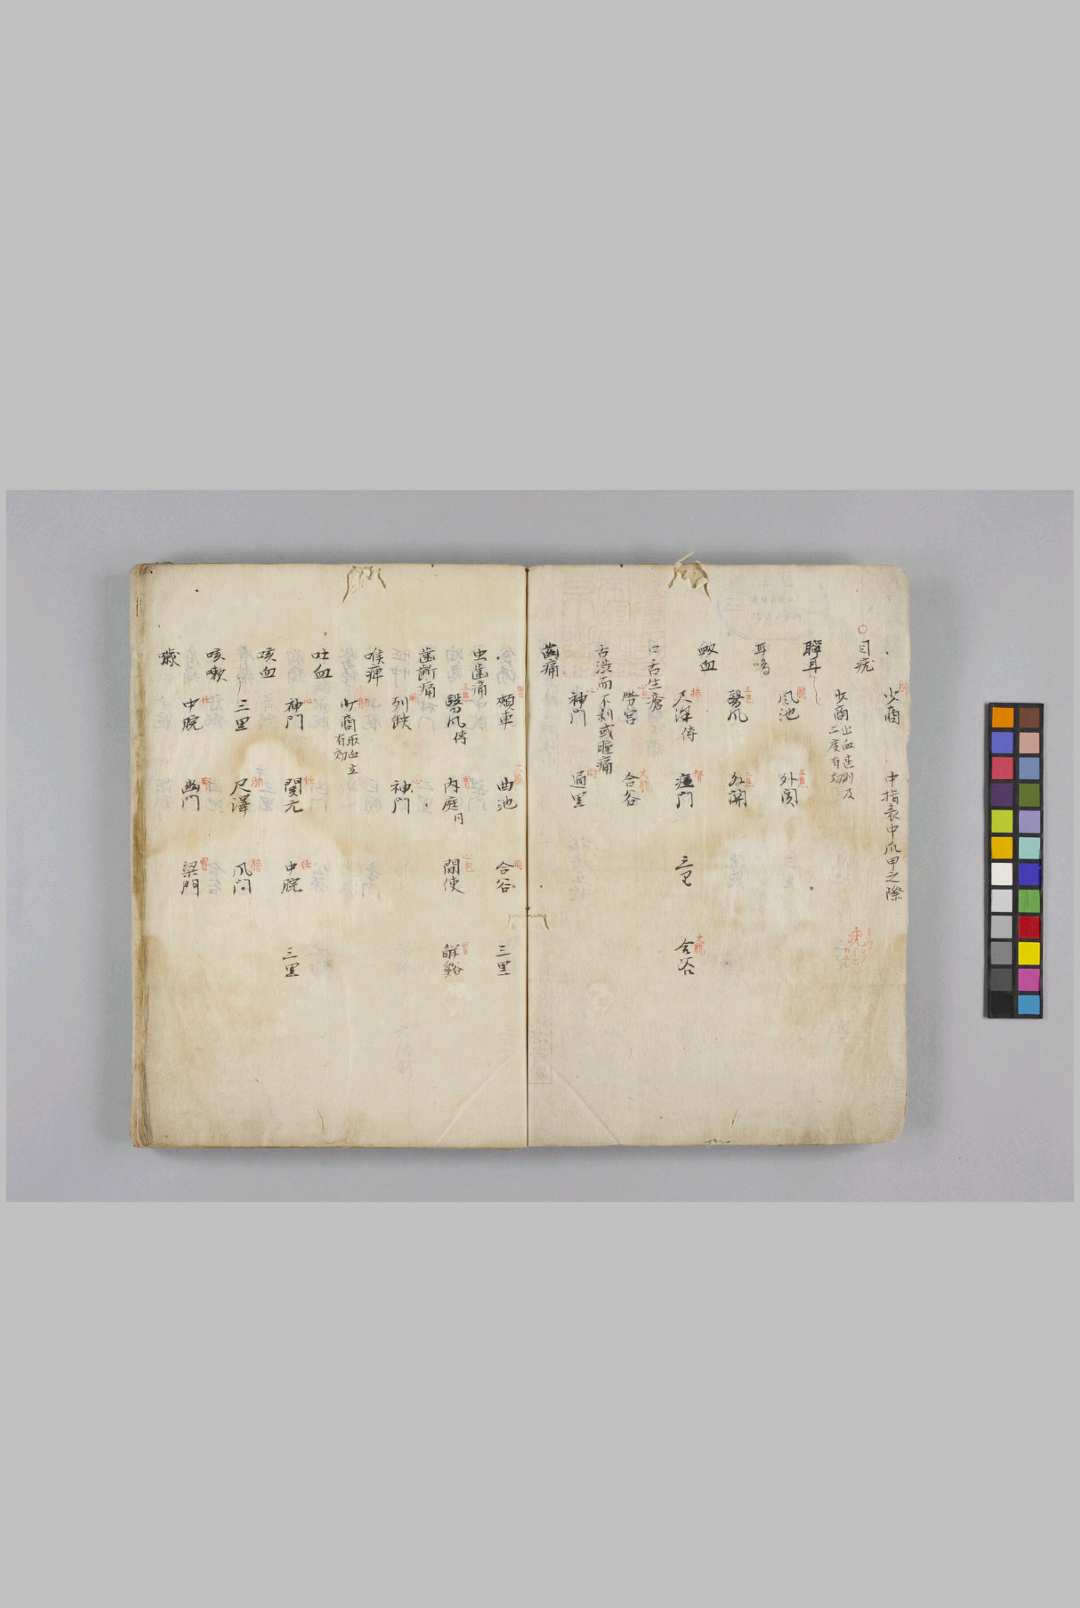 少商 中指表中爪甲之際
目疣
少商出血進則及
二度有効
聤耳
風池 外関
耳鳴
翳風 外関
衂血
尺澤傍 瘂門 三里 合谷
口舌生瘡
労宮 合谷
舌渋而不利或腫痛
神門 通里
歯痛
頬車 曲池 合谷 三里
虫歯痛
翳風傍 内庭 間使 解谿
歯齗痛
列缺 神門
喉痺
少商取血立
有効
吐血
神門 関元 中脘 三里
咳血
三里 尺澤 風門
咳嗽
中脘 幽門 梁門
噦